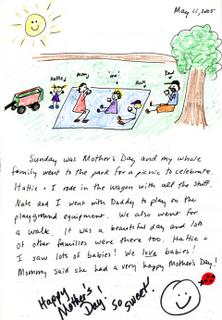 May 11, 2005
Hattie
Mommy
me
Nate
Dad
Sunday was Mother's Day and my whole
family went to the park for a picnic to celebrate.
Hattie + I rode in the wagon with all the stuff.
Nate and I went with Daddy to play on the
playground equipment. We also went for
a walk. It was a beautiful day and lots
of other families were there too. Hattie +
I saw lots of babies! We love babies!
Mommy said she had a very happy Mother's Day!
Happy
Mother's
Day. So sweet.